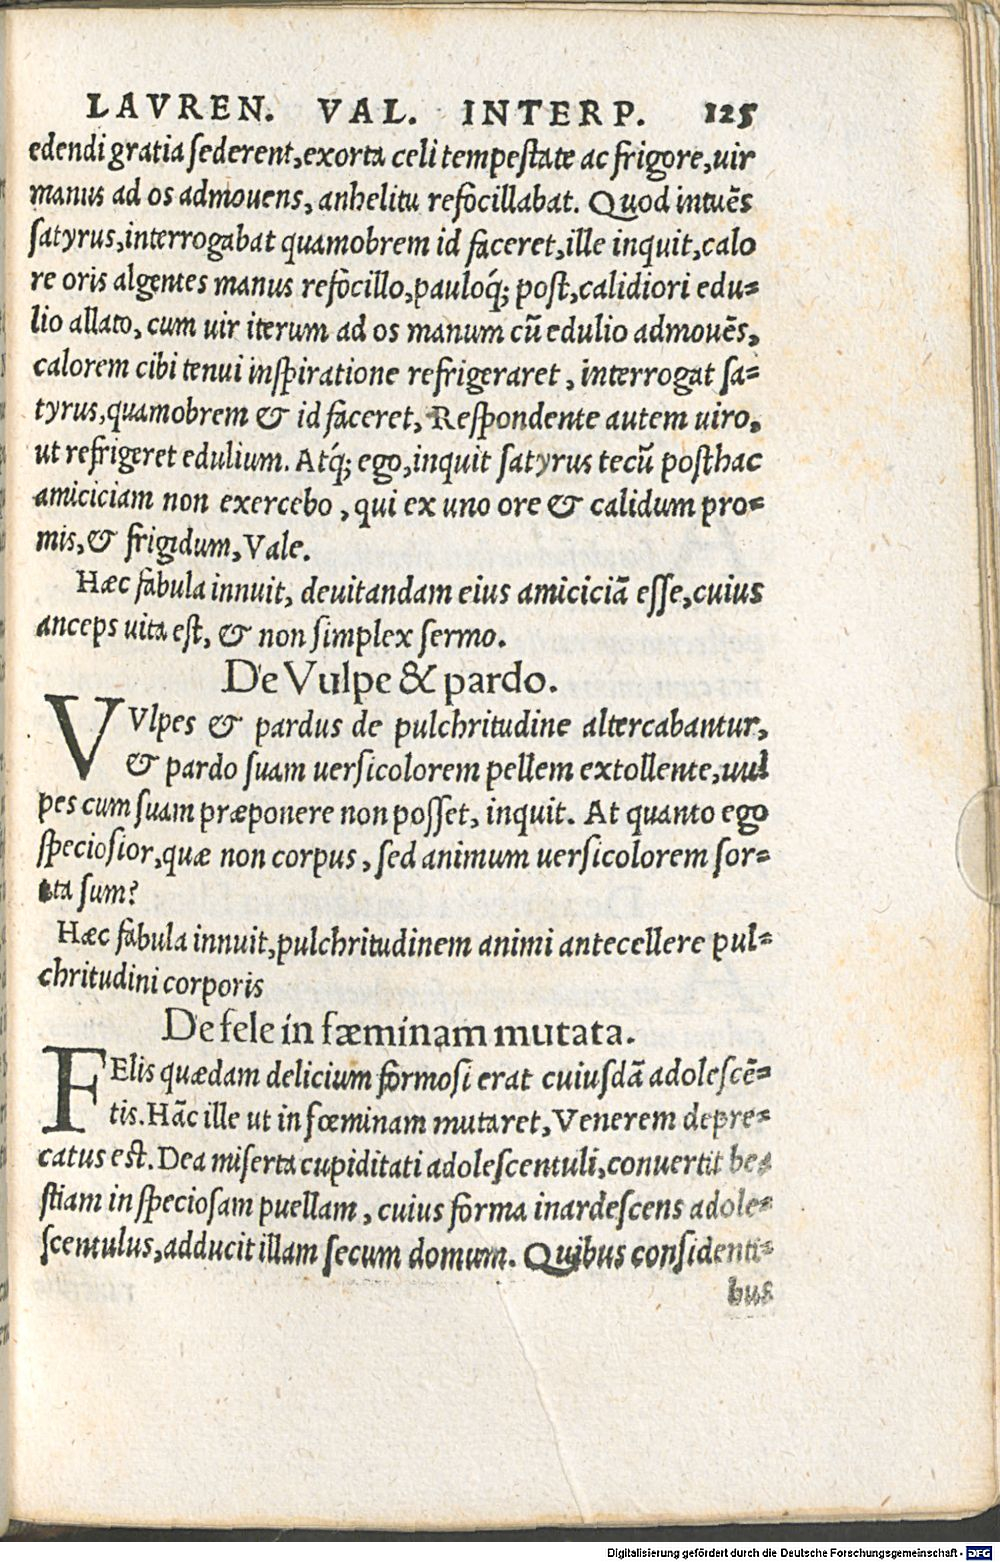 LAVREN. VAL. INTERP. 125
edendi gratia sederent, exorta celi tempestate ac frigore, uir
manus ad os admouens, anhelitu refocillabat. Quod intuẽs
satyrus, interrogabat quamobrem id faceret, ille inquit, calo
re oris algentes manus refocillo, pauloq́; post, calidiori edu=
lio allato, cum uir iterum ad os manum cũ edulio admouẽs,
calorem cibi tenui inspiratione refrigeraret, interrogat sa=
tyrus, quamobrem & id faceret, Respondente autem uiro,
ut refrigeret edulium. Atq́; ego, inquit satyrus tecũ posthac
amiciciam non exercebo, qui ex uno ore & calidum pro=
mis, & frigidum, Vale.
Hæc fabula innuit, deuitandam eius amiciciã esse, cuius
anceps uita est, & non simplex sermo.
De Vulpe & pardo.
VVlpes & pardus de pulchritudine altercabantur,
& pardo suam uersicolorem pellem extollente, uul
pes cum suam præponere non posset, inquit. At quanto ego
speciosior, quæ non corpus, sed animum uersicolorem sor=
tita sum?
Hæc fabula innuit, pulchritudinem animi antecellere pul=
chritudini corporis
De fele in fæminam mutata.
FElis quædam delicium formosi erat cuiusdã adolescẽ=
tis. Hãc ille ut in fœminam mutaret, Venerem depre=
catus est. Dea miserta cupiditati adolescentuli, conuertit be=
stiam in speciosam puellam, cuius forma inardescens adole=
scentulus, adducit illam secum domum. Quibus considenti=
bus
Digitalisierung gefördert durch die Deutsche Forschungsgemeinschaft - DFG